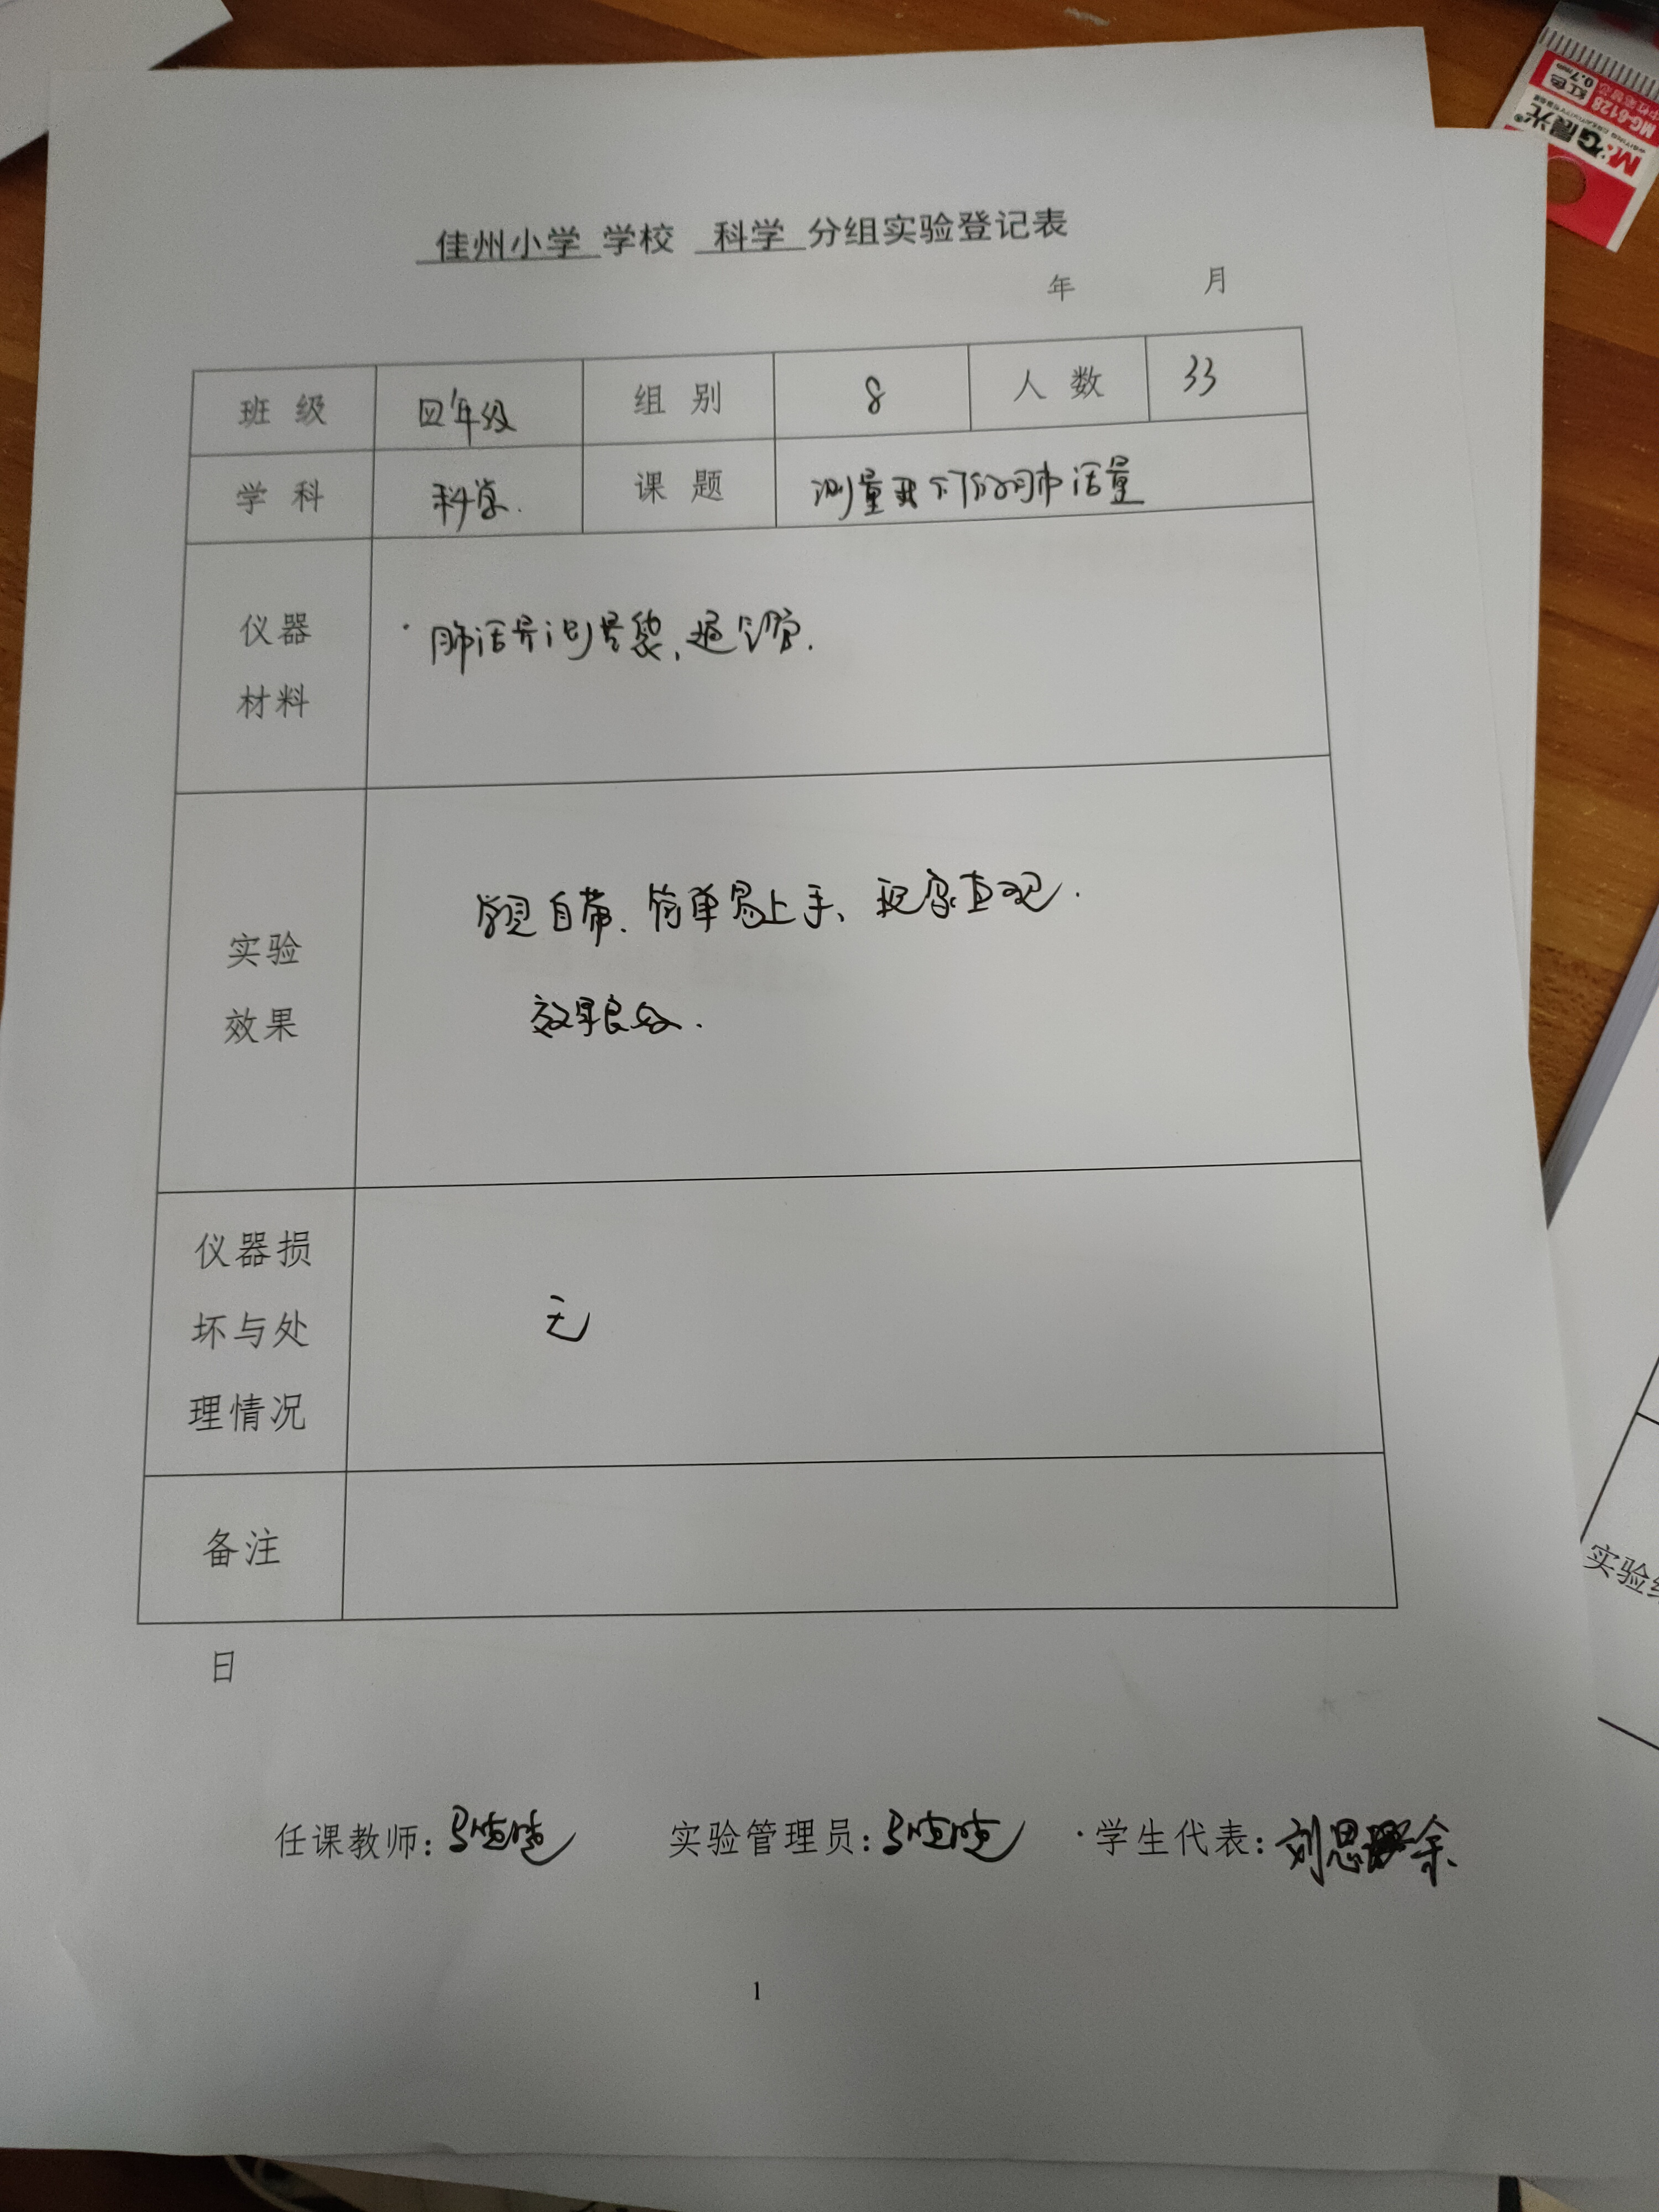 佳州小学 学校 科学 分组实验登记表
年 月
班 级 四年级 组 别 8 人 数 33
学 科 科学. 课 题 测量我们的肺活量
仪器
材料
肺活量测量袋、通气管.
实验
效果
学具自带、简单易上手、现象直观.
效果良好.
仪器损
坏与处
理情况
无
备注
日
任课教师: 实验管理员: 学生代表:刘思余
1
M&G晨光
MG-6128
红色
0.7mm
实验